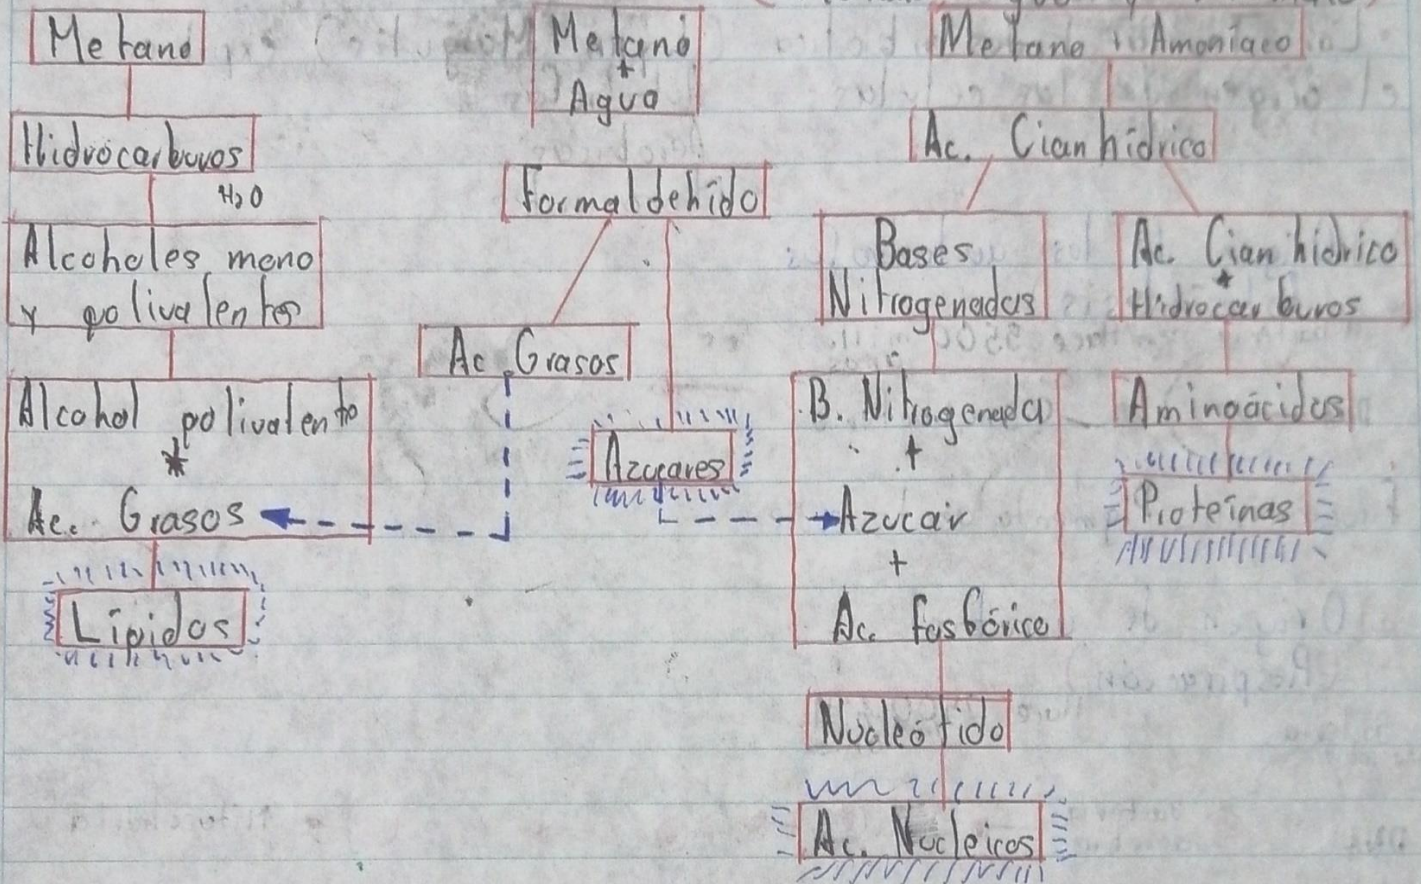 Metano
Hidrocarburos
H2O
Alcoholes mono
y polivalentes
Alcohol polivalente
+
Ac. Grasos
Lípidos
Metano
+
Agua
Formaldehído
Ac. Grasos
Azucares
Metano + Amoníaco
Ac. Cianhídrico
Bases
Nitrogenadas
B. Nitrogenada
+
Azucar
+
Ac. Fosfórico
Nucleótido
Ac. Nucleicos
Ac. Cianhídrico
+
Hidrocarburos
Aminoácidos
Proteínas